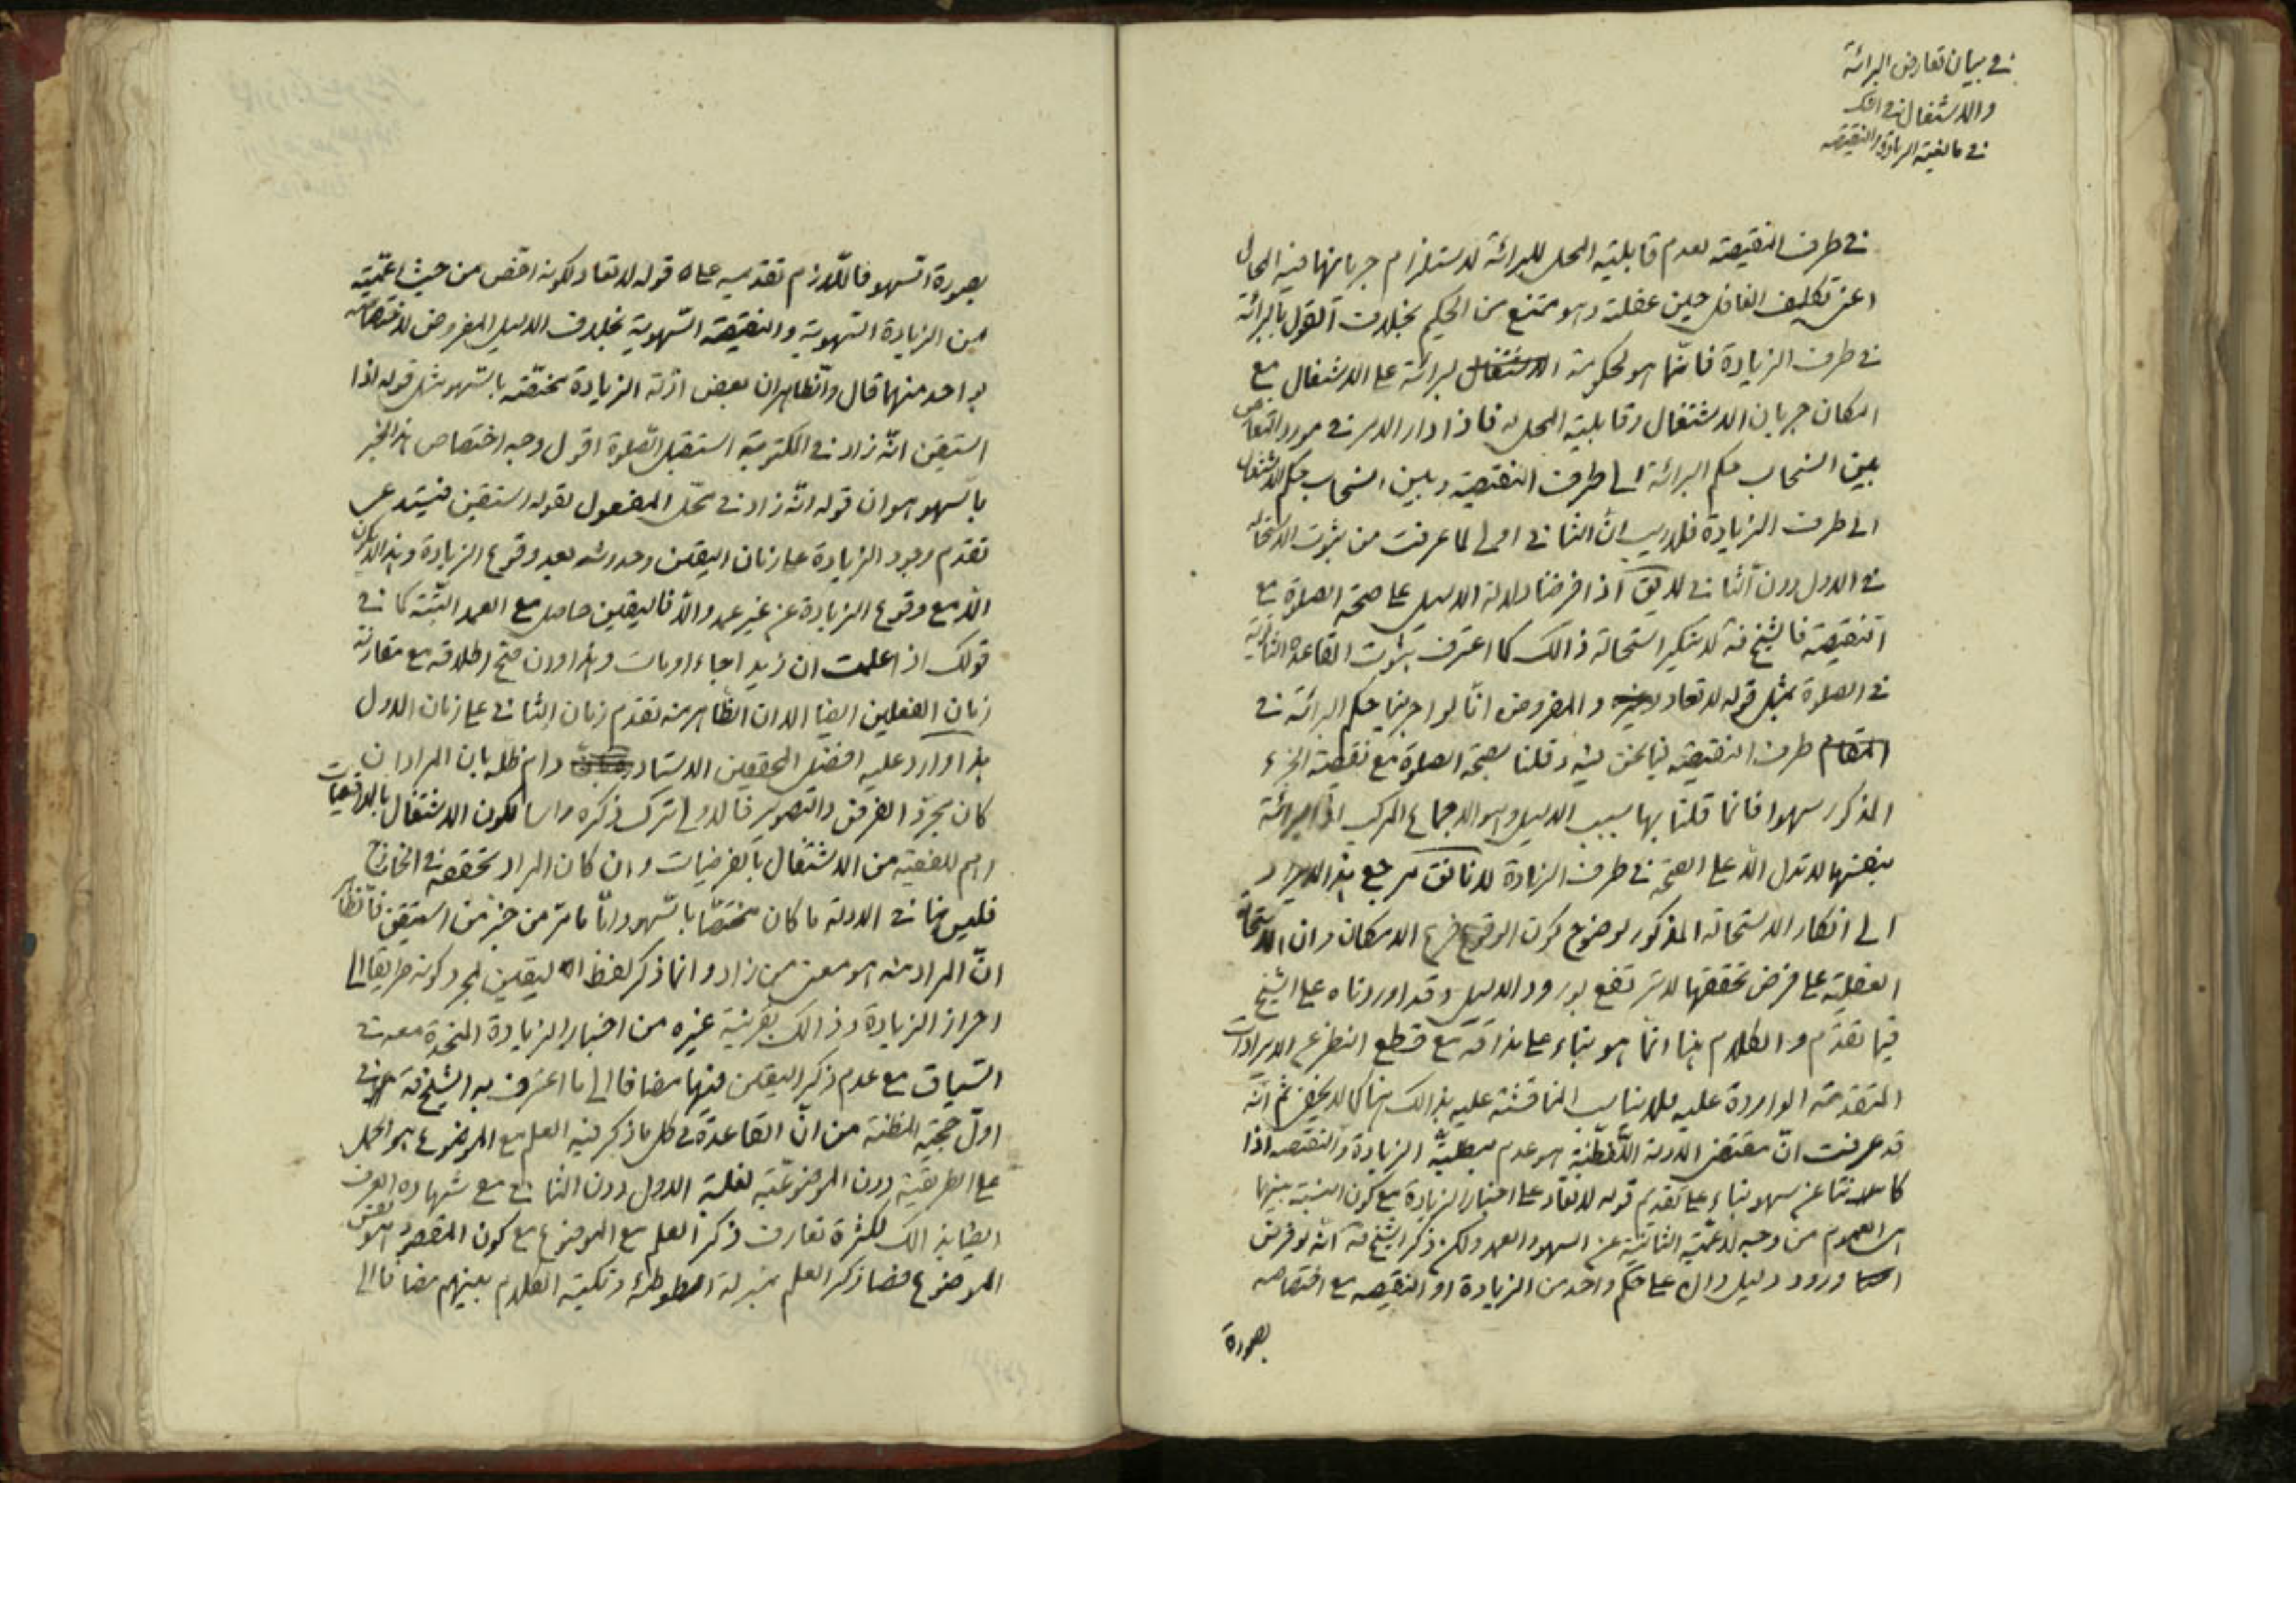 في بيان تعارض البرائة
والاشتغال في الشك
في مانعية الزيادة والنقيصة
في طرف النقيصة لعدم قابلية المحل للبرائة لاستلزام جريانها فيه المحال
اعنى تكليف الغافل حين غفلته وهو ممتنع من الحكيم بخلاف القول بالبرائة
في طرف الزيادة فانما هو لحكومة البرائة على الاشتغال مع
امكان جريان الاشتغال وقابلية المحل له فاذا دار الامر في مورد التعارض
بين انسحاب حكم البرائة الى طرف النقيصة وبين انسحاب حكم الاشتغال
الى طرف الزيادة فلاريب ان الثاني اولى لما عرفت من ثبوت الاستحالة
في الاول دون الثاني لايق اذا فرضنا دلالة الدليل على صحة الصلوة مع
النقيصة فالشيخ قه لاينكر استحالة ذالك كما اعترف بثبوت القاعدة الثانوية
في الصلوة بمثل قوله لاتعاد والمفروض انا لو اجرينا حكم البرائة في
طرف النقيصة فيما نحن فيه وقلنا بصحة الصلوة مع نقيصة الجزء
المذكور سهوا فانما قلنا بها بسبب الدليل وهو الاجماع المركب اذ البرائة
بنفسها لاتدل الا على الصحة في طرف الزيادة لانا نق مرجع هذا الايراد
الى انكار الاستحالة المذكور لوضوح كون الوقوع فرع الامكان وان الاستحالة
العقلية على فرض تحققها لاترتفع بورود الدليل وقد اوردناه على الشيخ
فيما تقدم والكلام هنا انما هو بناء على مذاقه مع قطع النظر عن الايرادات
المتقدمة الواردة عليه فلايناسب المناقشة عليه بذالك هنا كما لايخفى ثم انه
قد عرفت ان مقتضى الادلة اللفظية هو عدم مبطلية الزيادة والنقيصه اذا
كانتا عن سهو بناء على تقديم قوله لاتعاد على اخبار الزيادة مع كون النسبة بينهما
العموم من وجه لاعمية الثانية عن السهو والعمد ولكن ذكر الشيخ قه انه لو فرض
ورود دليل دال على حكم واحد من الزيادة او النقيصه مع اختصاصه
بصورة
بصورة السهو فاللازم تقديمه على قوله لاتعاد لكونه اخص من حيث اعميته
من الزيادة السهوية والنقيصة السهوية بخلاف الدليل المفروض لاختصاصه
بواحد منهما قال والظاهر ان بعض ادلة الزيادة مختصة بالسهو مثل قوله اذا
استيقن انه زاد في المكتوبة استقبل الصلوة اقول وجه اختصاص هذا الخبر
بالسهو هو ان قوله انه زاد في محل المفعول لقوله استيقن فيستدعى
تقدم وجود الزيادة على زمان اليقين وحدوثه بعد وقوع الزيادة وهذا لايكون
الا مع وقوع الزيادة عن غير عمد والا فاليقين حاصل مع العمد البتة كما في
قولك اذا علمت ان زيدا جاء او مات وهذا وان صح اطلاقه مع مقارنة
زمان الفعلين ايضا الا ان الظاهر منه تقدم زمان الثاني على زمان الاول
هذا واورد عليه افضل المحققين الاستاد دام ظله بان المراد ان
كان مجرد الفرض والتصوير فالاولى ترك ذكره راسا لكون الاشتغال بالواقعيات
اهم للفقيه من الاشتغال بالفرضيات وان كان المراد تحققه في الخارج
فليس هنا في الادلة ما كان مختصا بالسهو واما ما مر من خبر من استيقن فالظاهر
ان المراد منه هو معنى من زاد وانما ذكر لفظ اليقين لمجرد كونه طريقا الى
احراز الزيادة وذالك بقرينة غيره من اخبار الزيادة المتحدة معه في
السياق مع عدم ذكر اليقين فيها مضافا الى ما اعترف به الشيخ قه في
اول حجية المظنة من ان القاعدة في كل ما ذكر فيه العلم مع الموضوع هو الحمل
على الطريقية دون الموضوعية لغلبة الاول دون الثاني مع شهادة العرف
ايضا بذالك لكثرة تعارف ذكر العلم مع الموضوع مع كون المقصود هو نفس
الموضوع فصار ذكر العلم بمنزلة وتكية الكلام بينهم مضافا الى